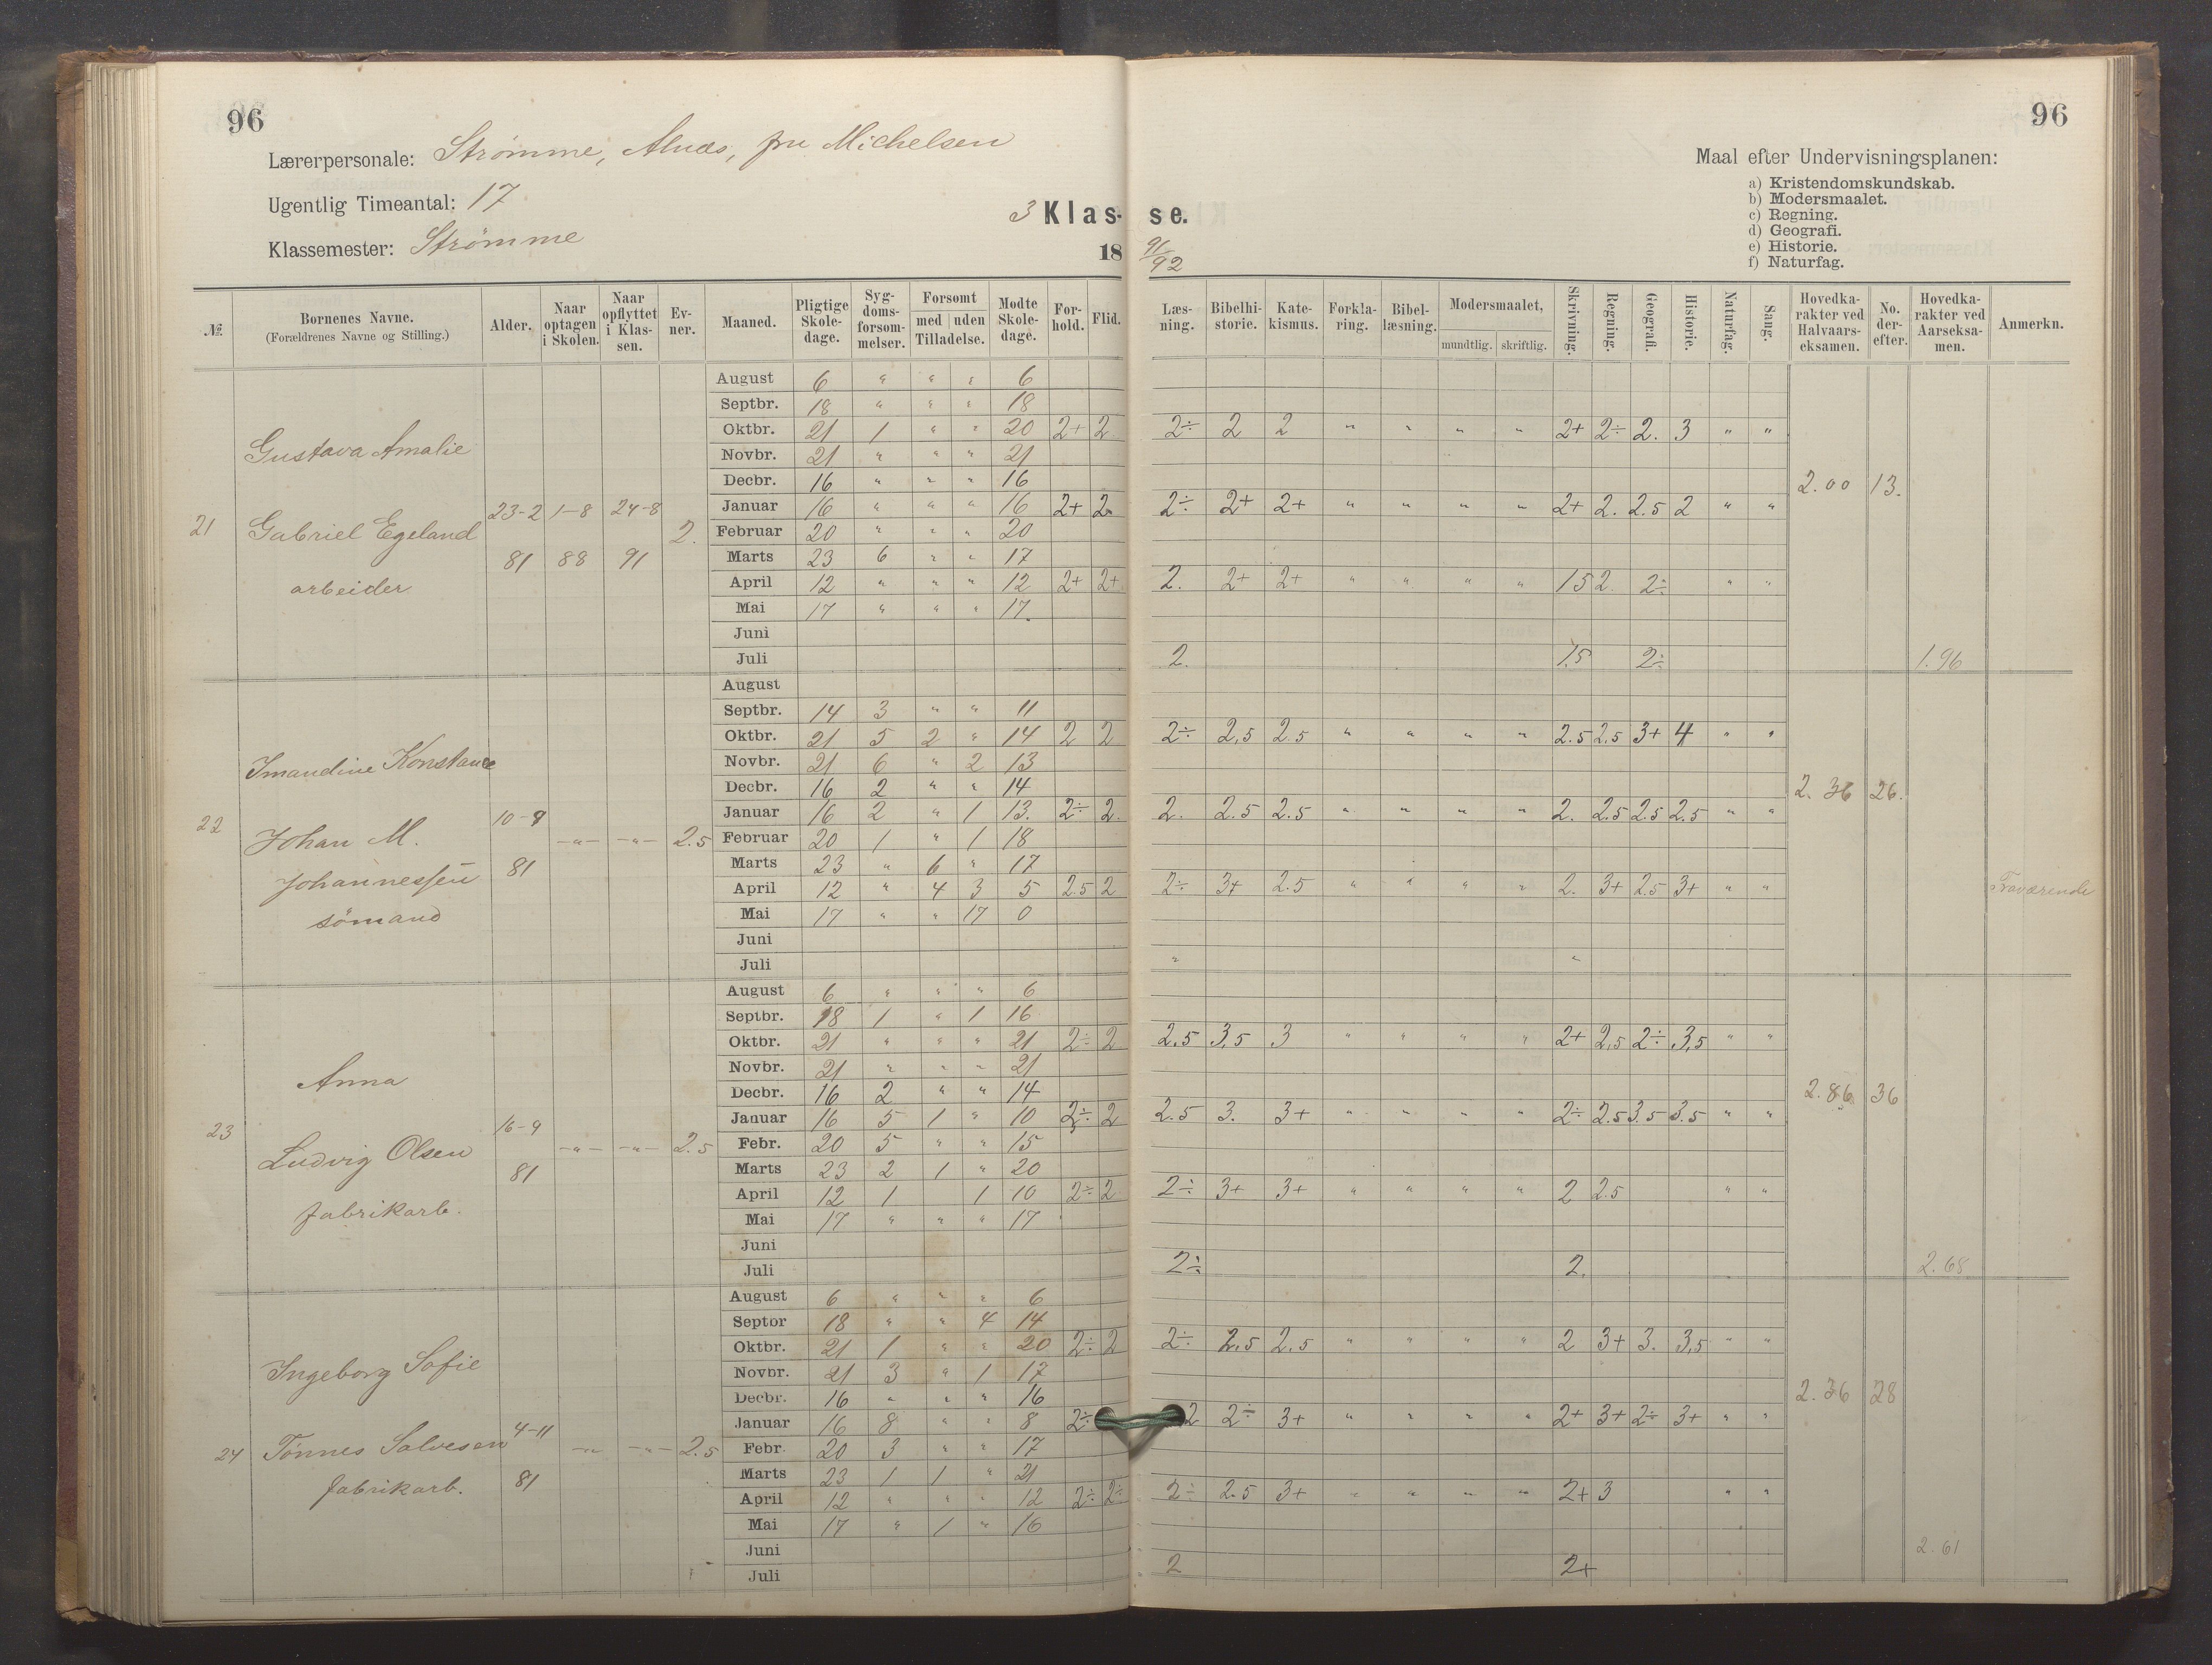 96
96
Lærerpersonale: Strømme, Alnæs, fru Michelsen
Ugentlig Timeantal: 17
Klassemester: Strømme
3 Klasse.
18 91/92
Maal efter Undervisningsplanen:
a) Kristendomskundskab.
b) Modersmaalet.
c) Regning.
d) Geografi.
e) Historie.
f) Naturfag.
№ | Børnenes Navne. (Forældrenes Navne og Stilling.) | Alder. | Naar optagen i Skolen. | Naar opflyttet i Klassen. | Evner. | Maaned. | Pligtige Skoledage. | Sygdomsforsømmelser. | Forsømt med Tilladelse. | uden Tilladelse. | Mødte Skoledage. | Forhold. | Flid. | Læsning. | Bibelhistorie. | Katekismus. | Forklaring. | Bibellæsning. | Modersmaalet, mundtlig. | skriftlig. | Skrivning. | Regning. | Geografi. | Historie. | Naturfag. | Sang. | Hovedkarakter ved Halvaarseksamen. | No. derefter. | Hovedkarakter ved Aarseksamen. | Anmerkn.
21 Gustava Amalie
Gabriel Egeland
arbeider
23-2 81 | 1-8 88 | 24-8 91 | 2.
August 6 " " " 6
Septbr. 18 " " " 18
Oktbr. 21 1 " " 20 2+ 2 2÷ 2 2 " " " " 2+ 2÷ 2. 3 " "
Novbr. 21 " " " 21
Decbr. 16 " " " 16
2.00 13.
Januar 16 " " " 16 2+ 2 2÷ 2+ 2+ " " " " 2+ 2. 2.5 2 " "
Februar 20 " " " 20
Marts 23 6 " " 17
April 12 " " " 12 2+ 2+ 2. 2+ 2+ " " " " 15 2. 2÷ " "
Mai 17 " " " 17.
Juni
Juli 2. 1.5 2÷ 1.96
22 Imandine Konstance
Johan M.
Johannessen
sømand
10-9 81 | -"- | -"- | 2.5
August
Septbr. 14 3 " " 11
Oktbr. 21 5 2 " 14 2 2 2÷ 2,5 2.5 " " " " 2.5 2,5 3+ 4 " "
Novbr. 21 6 " 2 13
Decbr. 16 2 " " 14
2.36 26.
Januar 16 2 " 1 13. 2÷ 2. 2. 2.5 2.5 " " " " 2. 2.5 2.5 2.5 " "
Februar 20 1 " 1 18
Marts 23 " 6 " 17
April 12 " 4 3 5 2.5 2 2÷ 3+ 2.5 " " " " 2. 3+ 2.5 3+ " " Fraværende
Mai 17 " " 17 0
Juni
Juli " "
23 Anna
Ludvig Olsen
fabrikarb.
16-9 81 | -"- | -"- | 2.5
August 6 " " " 6
Septbr. 18 1 " 1 16
Oktbr. 21 " " " 21 2÷ 2 2.5 3,5 3 " " " " 2+ 2,5 2÷ 3,5 " "
Novbr. 21 " " " 21
Decbr. 16 2 " " 14
2.86 36
Januar 16 5 1 " 10 2÷ 2 2.5 3. 3+ " " " " 2÷ 2.5 3.5 3.5 " "
Febr. 20 5 " " 15
Marts 23 2 1 " 20
April 12 1 1 10 2÷ 2 2÷ 3+ 3+ " " " " 2 2.5 " "
Mai 17 " " " 17
Juni
Juli 2÷ 2. 2.68
24 Ingeborg Sofie
Tønnes Salvesen
fabrikarb.
4-11 81 | -"- | -"- | 2.5
August 6 " " " 6
Septor 18 " " 4 14
Oktbr. 21 1 " " 20 2÷ 2 2÷ 2,5 2.5 " " " " 2 3+ 3. 3,5 " "
Novbr. 21 3 " 1 17
Decbr. 16 " " " 16
2.36 28
Januar 16 8 " " 8 2÷ 2 2÷ 3+ " " " " 2+ 3+ 2÷ 3+ " "
Febr. 20 3 " " 17
Marts 23 1 1 " 21
April 12 " " " 12 2÷ 2÷ 2÷ 2.5 3+ " " " " 2+ 3 " "
Mai 17 " 1 " 16
2.61
Juni
Juli 2 2+